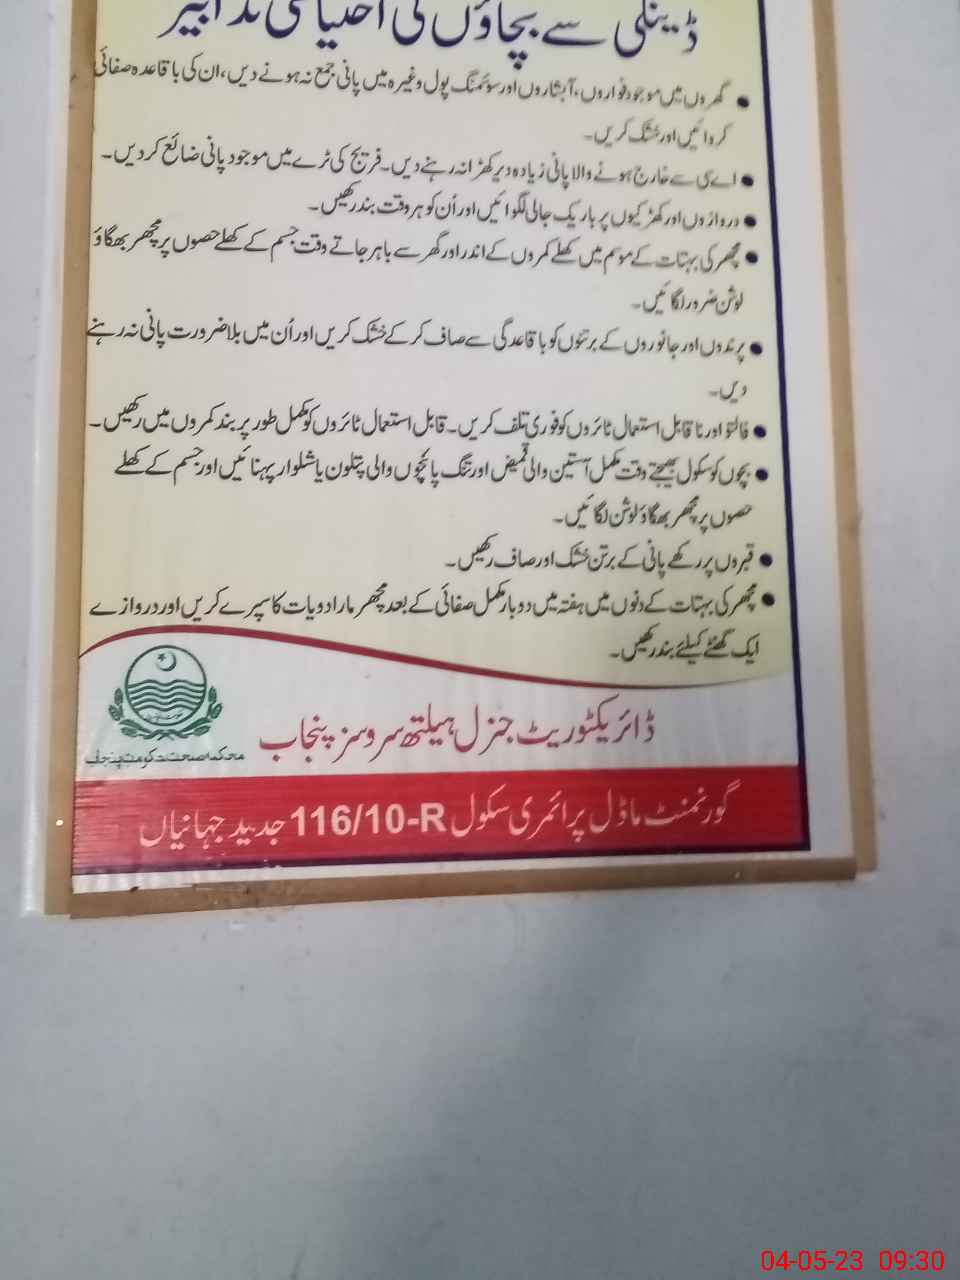 ڈینگی سے بچاؤں کی احتیاطی تدابیر
● گھروں میں موجود فواروں، آبشاروں اور سوئمنگ پول وغیرہ میں پانی جمع نہ ہونے دیں، ان کی باقاعدہ صفائی
کروائیں اور خشک کریں۔
● اے سی سے خارج ہونے والا پانی زیادہ دیر کھڑا نہ رہنے دیں۔ فریج کی ٹرے میں موجود پانی ضائع کر دیں۔
● دروازوں اور کھڑکیوں پر باریک جالی لگوائیں اور اُن کو ہر وقت بند رکھیں۔
● مچھر کی بہتات کے موسم میں کھلے کمروں کے اندر اور گھر سے باہر جاتے وقت جسم کے کھلے حصوں پر مچھر بھگاؤ
لوشن ضرور لگائیں۔
● پرندوں اور جانوروں کے برتنوں کو باقاعدگی سے صاف کر کے خشک کریں اور اُن میں بلا ضرورت پانی نہ رہنے
دیں۔
● فالتو اور ناقابل استعمال ٹائروں کو فوری تلف کریں۔ قابل استعمال ٹائروں کو مکمل طور پر بند کمروں میں رکھیں۔
● بچوں کو سکول بھیجتے وقت مکمل آستین والی قمیض اور تنگ پائنچوں والی پتلون یا شلوار پہنائیں اور جسم کے کھلے
حصوں پر مچھر بھگاؤ لوشن لگائیں۔
● قبروں پر رکھے پانی کے برتن خشک اور صاف رکھیں۔
● مچھر کی بہتات کے دنوں میں ہفتہ میں دو بار مکمل صفائی کے بعد مچھر مار ادویات کا سپرے کریں اور دروازے
ایک گھنٹے کیلئے بند رکھیں۔
ڈائریکٹوریٹ جنرل ہیلتھ سروسز پنجاب
محکمہ صحت حکومت پنجاب
گورنمنٹ ماڈل پرائمری سکول 116/10-R جدید جہانیاں
04-05-23 09:30